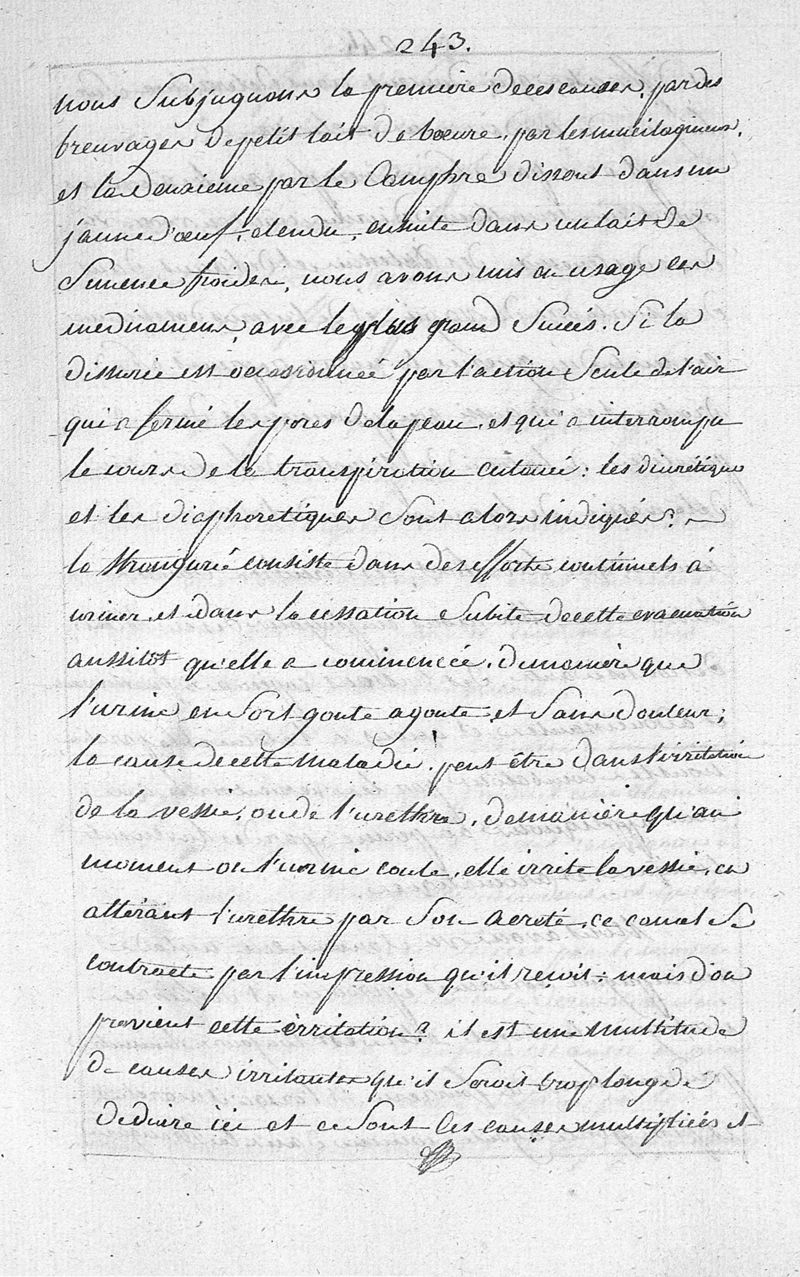 243.
nous Subjuguons la premiere de ces causes, par des
breuvages de petit lait de bœure, par les mucilagineux,
et la deuxieme par le Camphre dissout dans un
jaune d'œuf, etendu, ensuite dans un lait de
Semence froides, nous avons mis en usage ces
medicamens, avec le plus grand Succés. Si la
dissurie est occasionneé par l'action Seule de l'air
qui a fermé les pores de la peau, et qui a interrompu
le cours de la transpiration cutaneé: les diurétiques
et les diaphoretiques Sont alors indiqués?
la Strangurié consiste dans des efforts continuels á
uriner, et dans la cessation Subite de cette evacuation
aussitôt qu'elle a commenceé, de maniere que
l'urine en Sort goute a goute et Sans douleur;
la cause de cette maladie! peut être dans l'irritation
de la vessie, ou de l'urethre, de manière qu'au
moment ou l'urine coule, elle irrite la vessie, en
altérant l'urethre par Son acreté, ce canal Se
contracte par l'impression qu'il reçoit: mais d'ou
provient cette irritation? il est une multitude
de causes irritantes qu'il Seroit trop long de
deduire ici et ce Sont les causes multipliées et